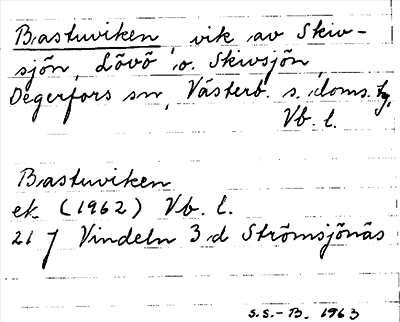 Bastuviken, vik av Skiv-
sjön, Lövö o. Skivsjön,
Degerfors sn, Västerb. s. doms. tg,
Vb. l.
Bastuviken
ek. (1962) Vb. l.
21 7 Vindeln 3 d Strömsjönäs
S.S.-B. 1963